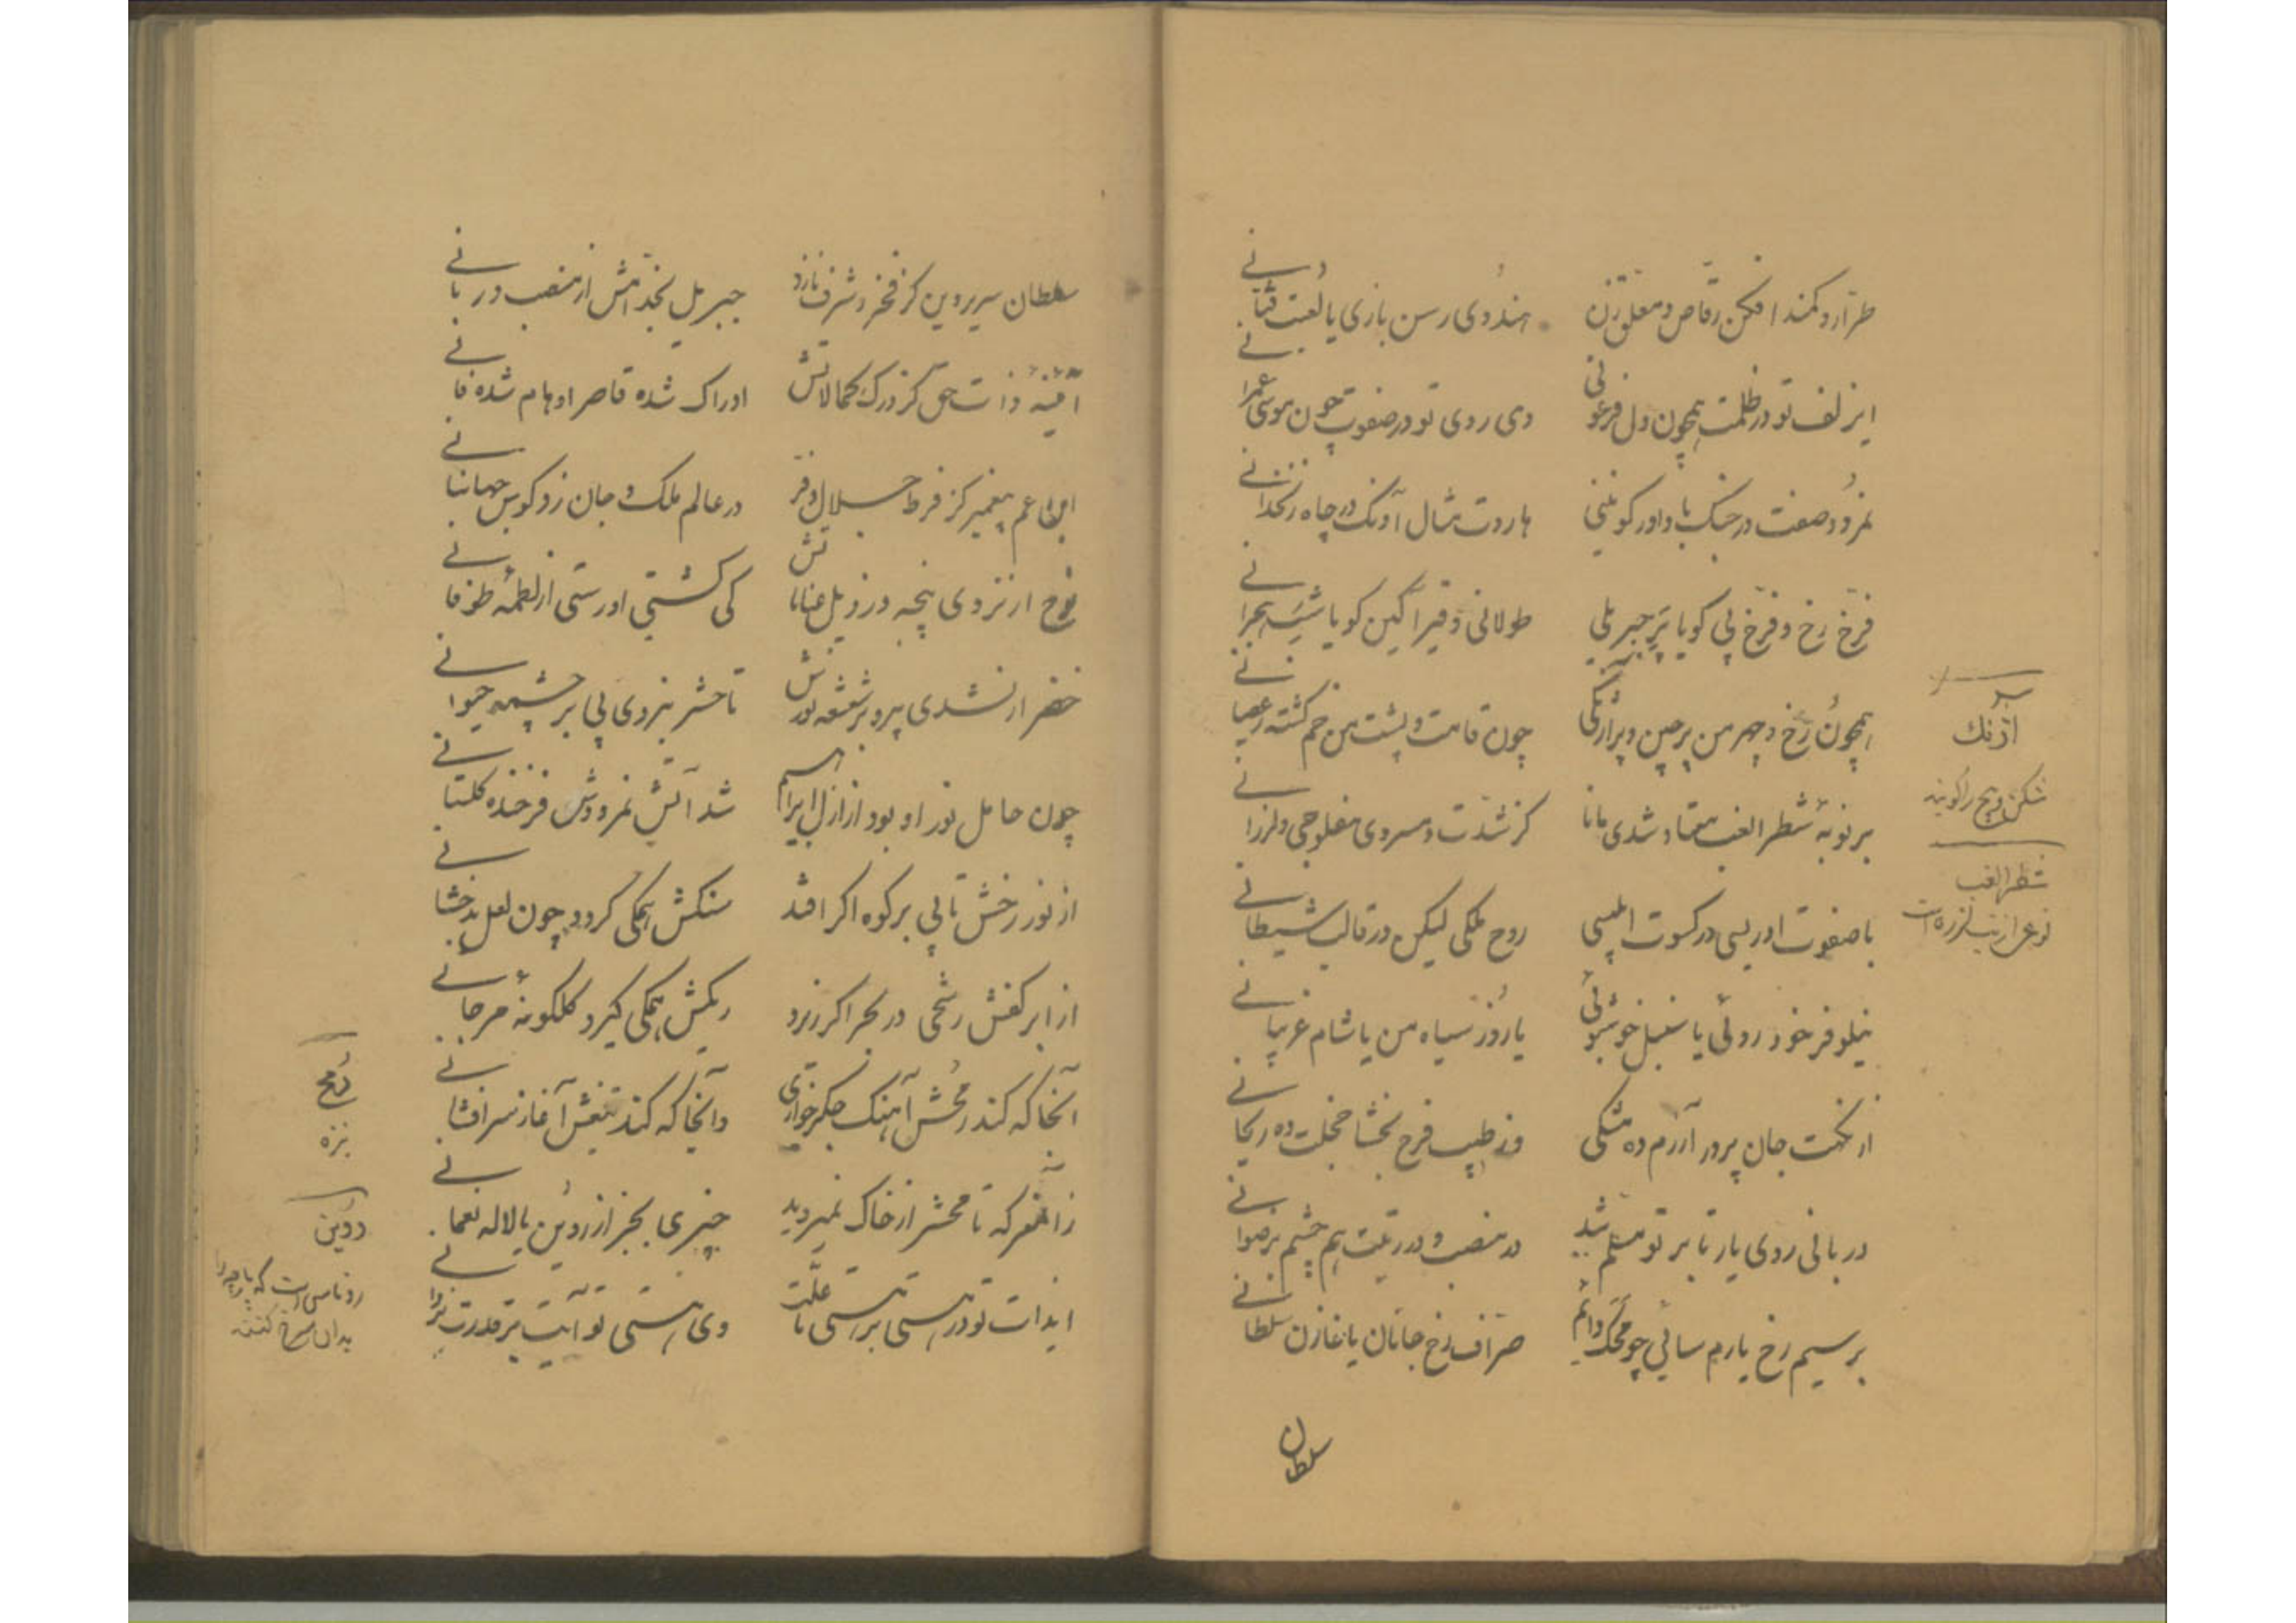 طرّار و کمند افکن رقّاص و معلّق زن
هندُوی رسن بازی یا لُعبت فتّانی
ایزلف تو در ظلمت همچون دل فرعونی
وی روی تو در صفوت چون موسی عمرانی
نمرُود صفت در جنک با داور کو بینی
هاروت مثال آونک در چاه زنخدانی
فرّخ رخ و فرّخ پی کویا پَرِ جبریلی
طولانی و قیرآکین کویا شب هجرانی
همچون رخ و چهر من پرچین و پر آژنکی
چون قامت و پشت من خم کشته ز عصیانی
بر نوبهٔ شطر الغب معتاد شدی مانا
کز شدّت و سردی مفلوجی و لرزانی
با صفوت ادریسی در کسوت ابلیسی
روح ملکی لیکن در قالب شیطانی
نیلوفر خود روئی یا سنبل خوشبوئی
یا رُوز سیاه من یا شام غریبانی
از نکهت جان پرور آزرم ده مشکی
وز طیب فرح بخشا خجلت ده ریحانی
دربانی روی یار تا بر تو مسلّم شد
در منصب و در رتبت هم چشم برضوانی
بر سیم رخ یارم سائی چو محک دائم
صرّاف رخ جانان یا خازن سلطانی
سلطان
آژنک
شکن و چین را کویند
شطر الغب
نوعی از تب لرزه است
سلطان سریر دین کز فخر و شرف نازد
جبریل بخدّامش از منصب دربانی
آئینهٔ ذات حق کز درک کمالاتش
ادراک شده قاصر اوهام شده فانی
ابن عم پیغمبر کز فرط جلال و فر
در عالم ملک و جان زد کوس جهانبانی
نوح ار نزدی پنجه در ذیل عنایاتش
کی کشتی او رستی از لطمهٔ طوفانی
خضر ار نشدی پیرو بر شعشعه نورش
تا حشر نبردی پی بر چشمه حیوانی
چون حامل نور او بود از ازل ابراهیم
شد آتش نمرودش فرخنده کلستانی
از نور رخش تابی بر کوه اکر افتد
سنکش همکی کردد چون لعل بدخشانی
از ابر کفش رشحی در بحر اکر ریزد
ریکش همکی کیرد کلکونهٔ مرجانی
آنجا که کند رمحش آهنک جکرخواری
وانجا که کند تیغش آغاز سرافشانی
زان معرکه تا محشر از خاک نمیروید
چیزی بجز از روین یا لاله نعمانی
ایذات تو در هستی بر هستی ما علّت
وی هستی تو آیت بر قدرت یزدانی
رُمح
نیزه
روین
روناس است که پارچه را
بدان سرخ کنند